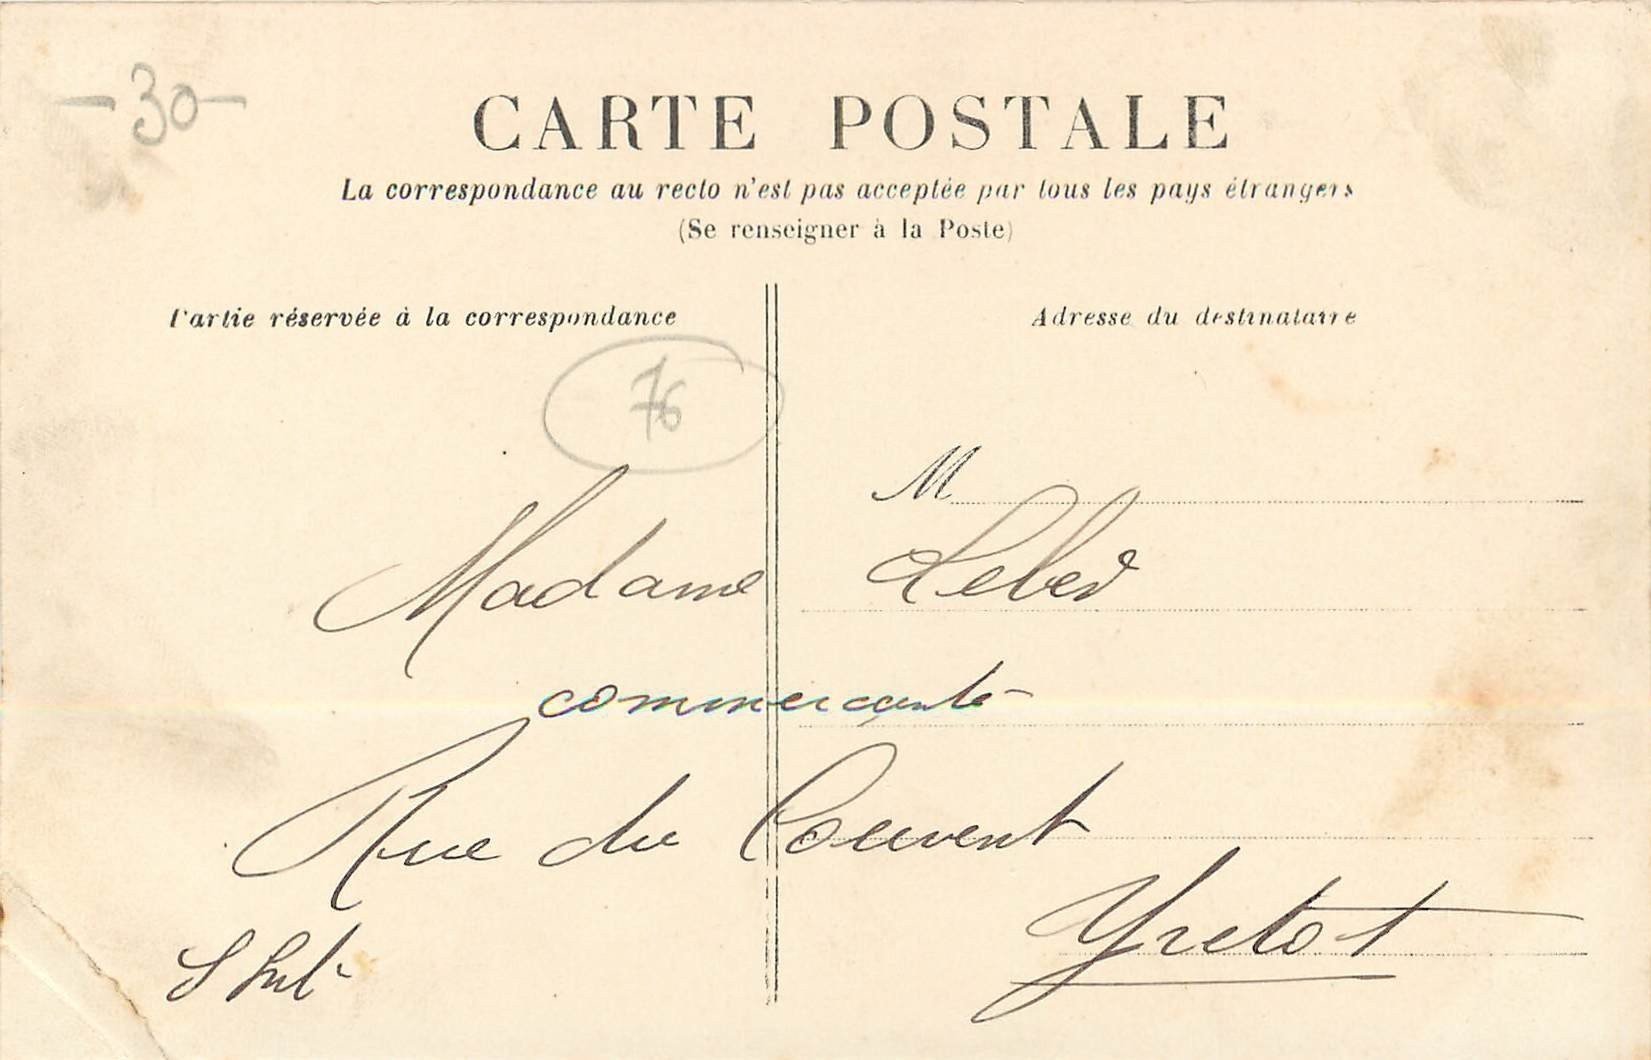 -30-
CARTE POSTALE
La correspondance au recto n'est pas acceptée par tous les pays étrangers
(Se renseigner à la Poste)
Partie réservée à la correspondance
Adresse du destinataire
76
M
Madame
commerçante
Rue du Couvent
Yvetot
S Inf